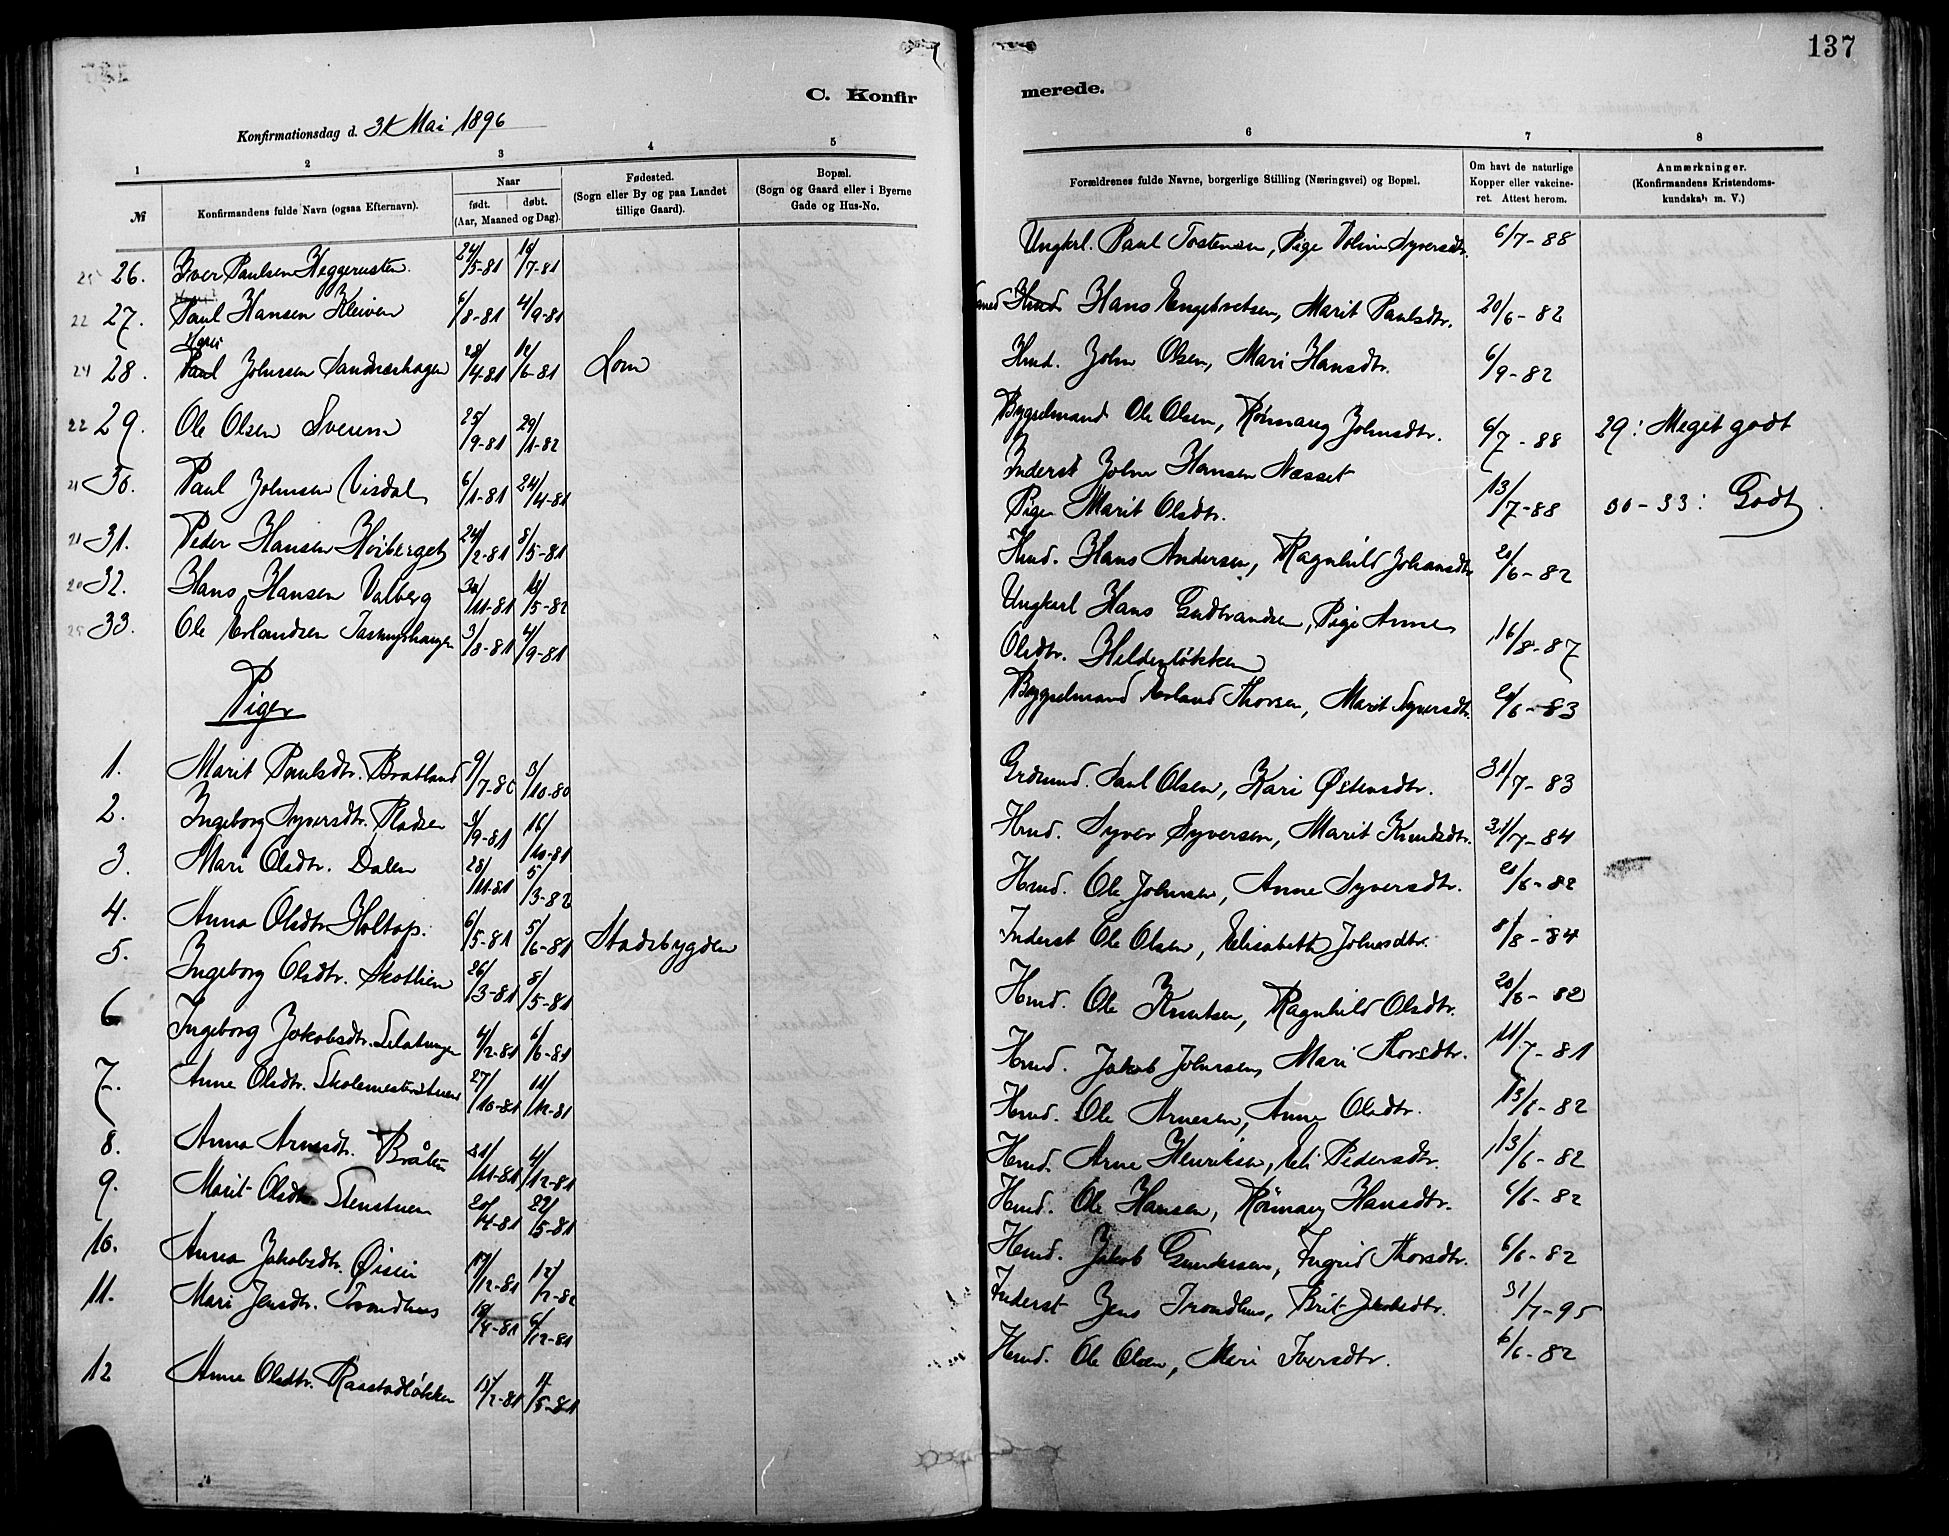 137
C. Konfir
merede.
Konfirmationsdag d. 31 Mai 1896
1 2 3 4 5
6 7 8
№ Konfirmandens fulde Navn (ogsaa Efternavn). Naar født. døbt. (Aar, Maaned og Dag). Fødested. (Sogn eller By og paa Landet tillige Gaard). Bopæl. (Sogn og Gaard eller i Byerne Gade og Hus-No.
Forældrenes fulde Navne, borgerlige Stilling (Næringsvei) og Bopæl. Om havt de naturlige Kopper eller vakcineret. Attest herom. Anmærkninger. (Konfirmandens Kristendomskundskab m. V.)
25 26. Iver Paulsen Heggerusten 24/5-81 /7-81
22 27. Paul Hansen Kleiven 6/8-81 4/9-81
24 28. Johnsen 28/4-81 12/6-81 Lom
22 29. Ole Olsen Sveum 25/9-81 29/1-82
21 30. Paul Johnsen Visdal 6/1-81 24/4-81
21 31. Peder Hansen Høiberget 24/2-81 8/5-81
20 32. Hans Hansen Valberg /11-81 /5-82
25 33. Ole Erlandsen 3/8-81 4/9-81
Piger
1. Marit Paulsdtr. Bratland 9/7-80 3/10-80
2. Ingeborg Syversdtr. Pladsen /9-81 16/10-81
3. Mari Olsdtr. Dalen 28/11-81 5/3-82
4. Anna Olsdtr. Holtap. 6/5-81 5/6-81 Stadsbygden
5. Ingeborg Olsdtr. Skotlien 26/3-81 8/5-81
6 Ingeborg Jakobsdtr. 4/2-81 6/6-81
7. Anne Olsdtr. Skolemesterstuen 27/10-81 11/12-81
8. Anna Arnesdtr. Bråten /11-81 4/12-81
9. Marit Olsdtr. Stenstuen 20/4-81 22/5-81
10. Anna Jakobsdtr. Øiseie /12-81 12/2-82
11. Mari Jensdtr. Trondhus 18/4-81 6/12-81
12 Anne Olsdtr. Raastadløkken /2-81 /5-81
Ungkrl. Paul Tostensen, Pige Syversdtr. 6/7-88
Hans Engebretsen, Marit Paulsdtr. 20/6-82
Hmd. John Olsen, Mari Hansdtr. 6/9-82
Bygselmand Ole Olsen, Rønnaug Johnsdtr. 6/7-88 29: Meget godt
Inderst John Hansen Næsset
Pige Marit Olsdtr. 13/7-88 30-33: Godt
Hmd. Hans Andersen, Ragnhild Johansdtr. 20/6-82
Ungkarl Hans Gudbrandsen, Pige Anne
Olsdtr. 16/8-87
Bygselmand Erland Thorsen, Marit Syversdtr. /6-83
Grdmnd. Paul Olsen, Kari Østensdtr. 31/7-83
Hmd. Syver Syversen, Marit Knudsdtr. 31/7-84
Hmd. Ole Johnsen, Anne Syversdtr. 20/6-82
Inderst Ole Olsen, Elisabeth Johnsdtr. 8/8-84
Hmd. Ole Knutsen, Ragnhild Olsdtr. 20/6-82
Hmd. Jakob Johnsen, Mari Thorsdtr. 11/7-81
Hmd. Ole Arnesen, Anne Olsdtr. 13/6-82
Hmd. Arne Henriksen, Eli Pedersdtr. 13/6-82
Hmd. Ole Hansen, Rønnaug Hansdtr. 6/6-82
Hmd. Jakob Gundersen, Ingrid Thorsdtr. 6/6-82
Inderst Jens Trondhus, Brit Jakobsdtr. 31/7-95
Hmd. Ole Olsen, Mari Iversdtr. 6/6-82